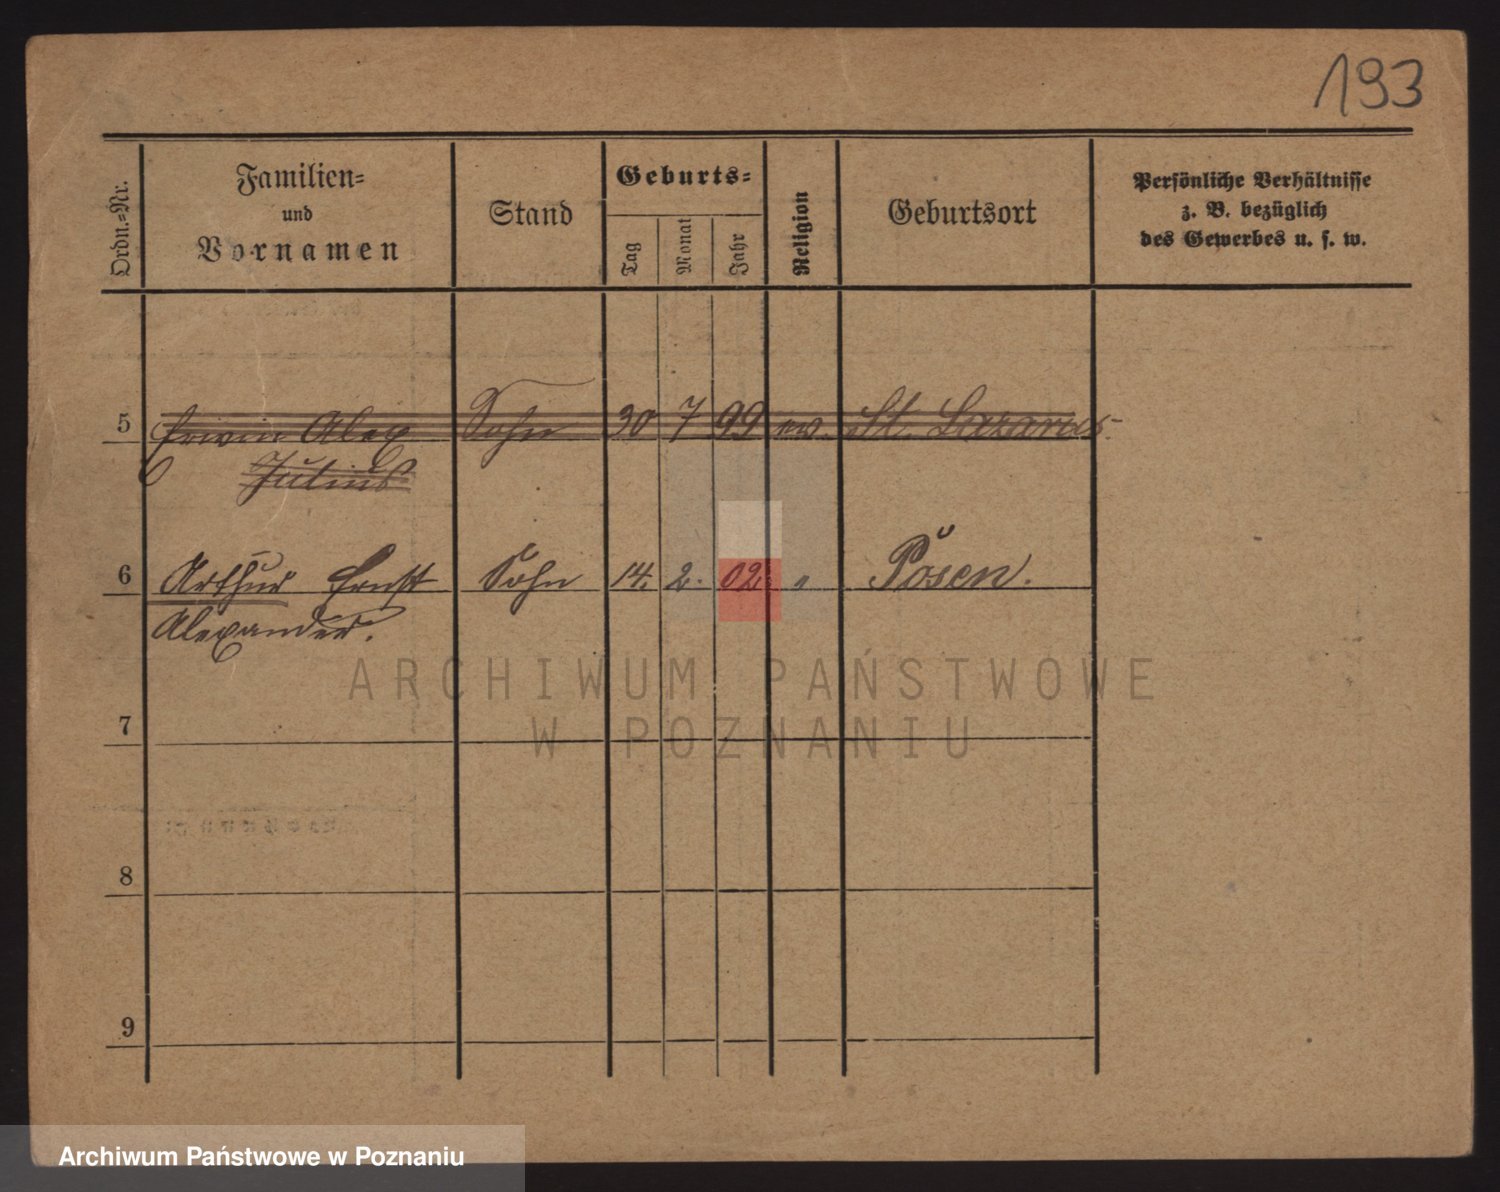 193
Ordn.-Nr.
Familien-
und
Vornamen
Stand
Geburts-
Tag
Monat
Jahr
Religion
Geburtsort
Persönliche Verhältnisse
z. B. bezüglich
des Gewerbes u. s. w.
5 Erwin Alex Sohn 30 7 99 ev. St. Lazarus
Julius
6 Arthur Ernst Sohn 14. 2. 02. " Posen.
Alexander.
ARCHIWUM PAŃSTWOWE
W POZNANIU
7
8
9
Archiwum Państwowe w Poznaniu